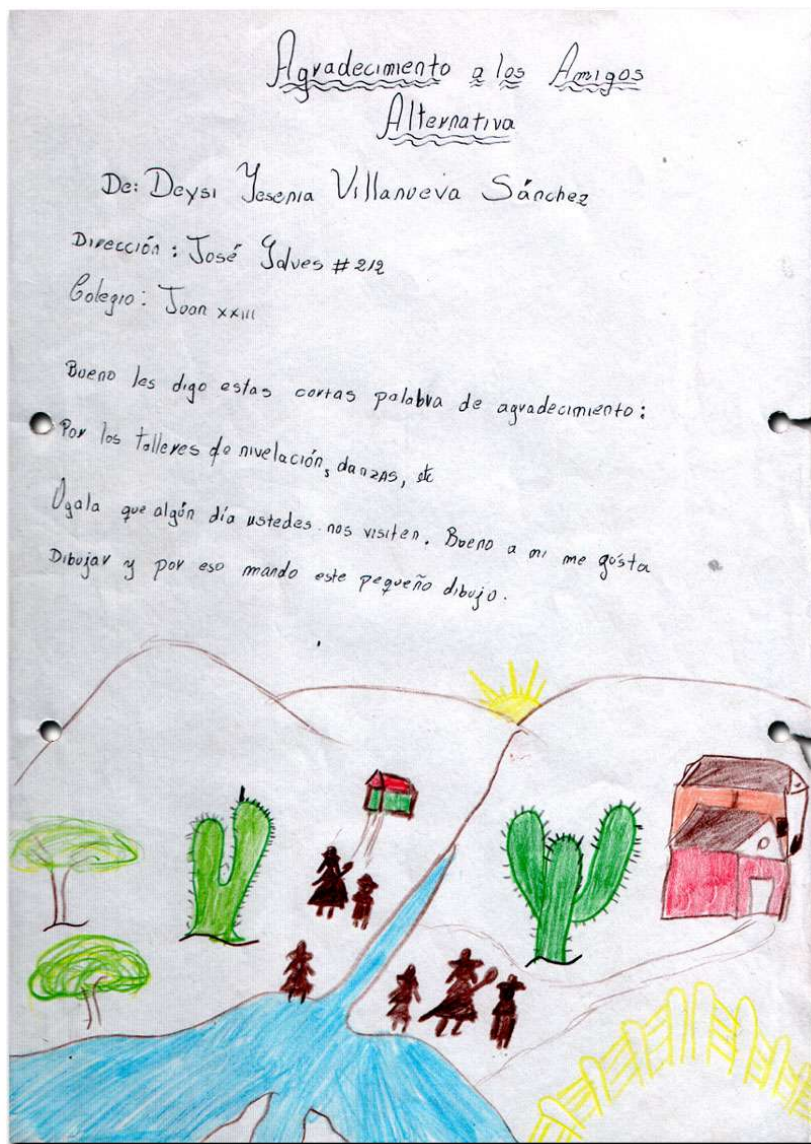 Agradecimiento a los Amigos
Alternativa
De: Deysi Yesenia Villanueva Sánchez
Dirección: José Galves # 212
Colegio: Juan XXIII
Bueno les digo estas cortas palabra de agradecimiento:
Por los talleres de nivelación, danzas, etc
Ogala que algún día ustedes nos visiten. Bueno a mi me gusta
Dibujar y por eso mando este pequeño dibujo.